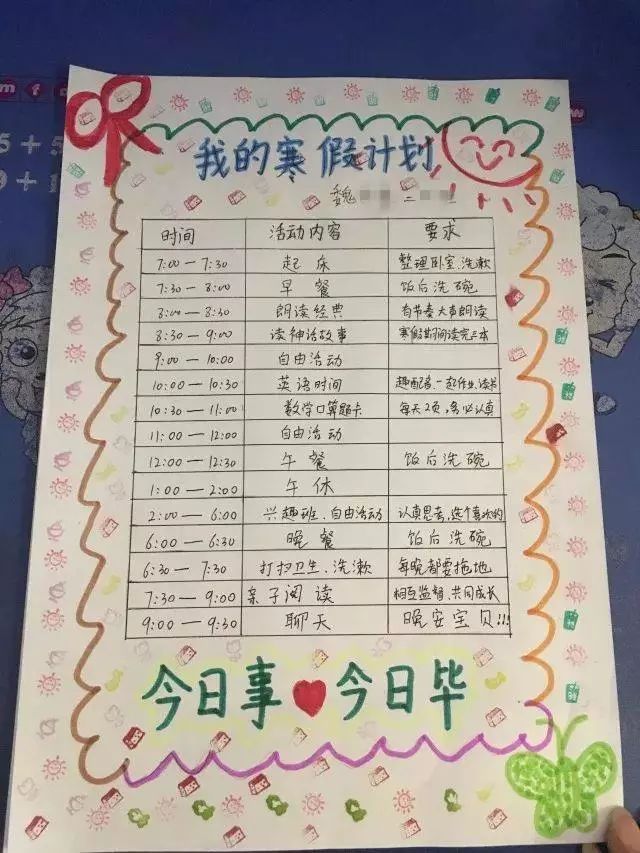 我的寒假计划
魏
时间 活动内容 要求
7:00—7:30 起床 整理卧室、洗漱
7:30—8:00 早餐 饭后洗碗
8:00—8:30 朗读经典 有节奏大声朗读
8:30—9:00 读神话故事 寒假期间读完二本
9:00—10:00 自由活动
10:00—10:30 英语时间 趣配音、一起作业、读书
10:30—11:00 数学口算题卡 每天2页,务必认真
11:00—12:00 自由活动
12:00—12:30 午餐 饭后洗碗
1:00—2:00 午休
2:00—6:00 兴趣班、自由活动 认真思考、选个喜欢的
6:00—6:30 晚餐 饭后洗碗
6:30—7:30 打扫卫生、洗漱 每晚都要拖地
7:30—9:00 亲子阅读 相互监督、共同成长
9:00—9:30 聊天 晚安宝贝!!!
今日事 今日毕